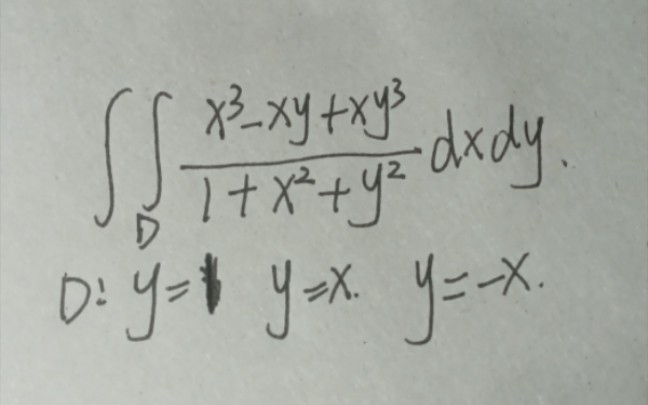 ∬_D (x³-xy+xy³)/(1+x²+y²) dxdy.
D: y=1 y=x. y=-x.